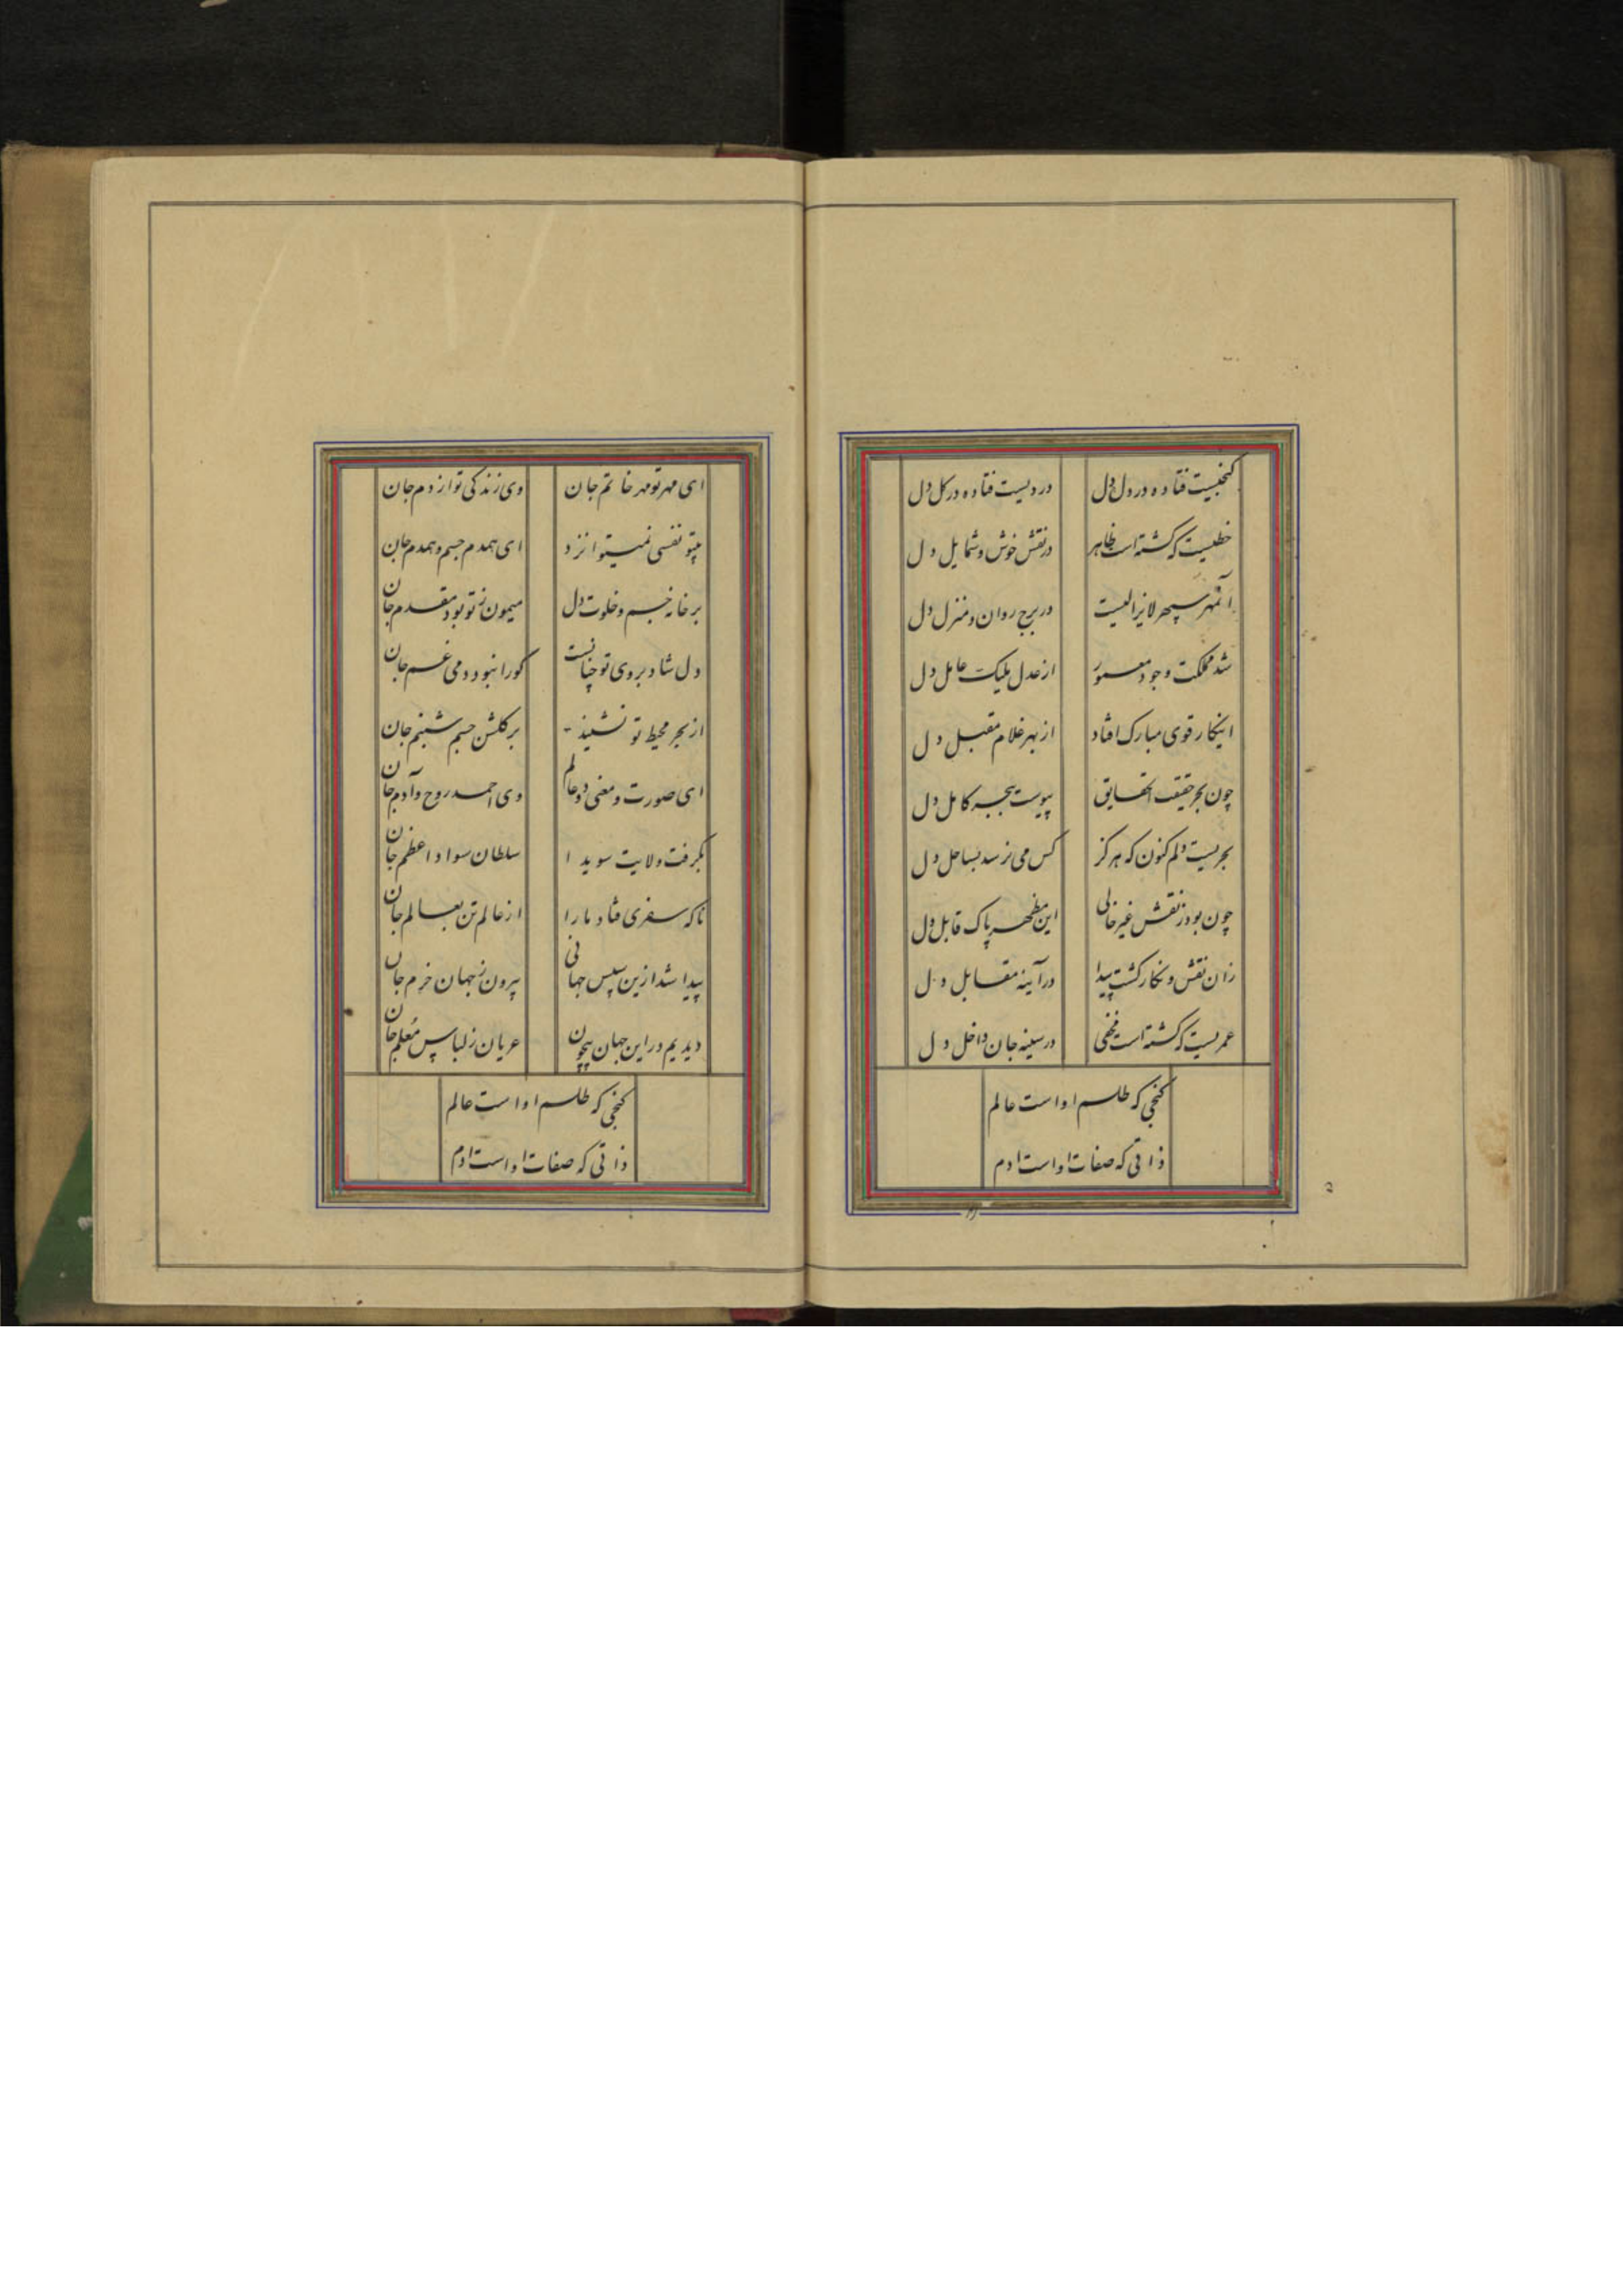 کنجیست فتاده در دل دل
دردیست فتاده در کل دل
خطیست که کشته است ظاهر
در نقش خوش و شمایل دل
آنمهر سپهر لایزالیست
در برج روان و منزل دل
شد مملکت وجود معمور
از عدل ملیک عامل دل
اینکار قوی مبارک افتاد
از بهر غلام مقبل دل
چون بحر حقیقت الحقایق
پیوست ببحر کامل دل
بحریست دلم کنون که هرکز
کس می نرسد بساحل دل
چون بود ز نقش غیر خالی
این مظهر پاک قابل دل
زان نقش و نکار کشت پیدا
در آینه مقابل دل
عمریست که کشته است مخفی
در سینه جان داخل دل
کنجی که طلسم او است عالم
ذاتی که صفات او است ادم
ای مهر تو مهر خاتم جان
وی زندکی تو از دم جان
بیتو نفسی نمیتوانزد
ای همدم جسم و همدم جان
بر خانه جسم و خلوت دل
میمون ز تو بود مقدم جان
دل شاد بروی تو چنانست
کورا نبود دمی غم جان
از بحر محیط تو نشیند
بر کلشن جسم شبنم جان
ای صورت و معنی دو عالم
وی احمد روح و آدم جان
بکرفت ولایت سویدا
سلطان سواد اعظم جان
ناکه سفری فتاد مارا
از عالم تن بعالم جان
پیدا شد ازین سپس جهانی
بیرون ز جهان خرم جان
دیدیم در این جهان بیچون
عریان ز لباس معلم جان
کنجی که طلسم او است عالم
ذاتی که صفات او است ادم